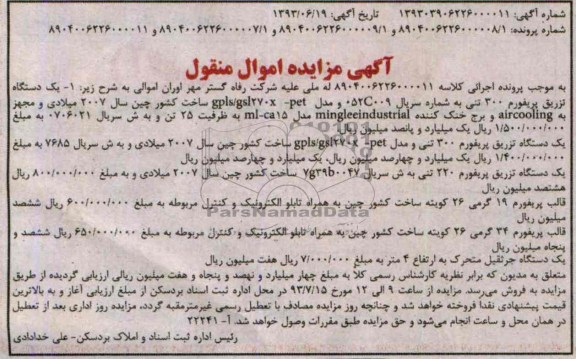 شماره آگهی: ۱۳۹۳۰۳۹۰۶۲۲۶۰۰۰۰۱۱ تاریخ آگهی: ۱۳۹۳/۰۶/۱۹
شماره پرونده: ۸۹۰۴۰۰۶۲۲۶۰۰۰۰۰۸/۱ و ۸۹۰۴۰۰۶۲۲۶۰۰۰۰۰۹/۱ و ۸۹۰۴۰۰۶۲۲۶۰۰۰۰۰۷/۱ و ۸۹۰۴۰۰۶۲۲۶۰۰۰۰۱۱
آگهی مزایده اموال منقول
به موجب پرونده اجرائی کلاسه ۸۹۰۴۰۰۶۲۲۶۰۰۰۰۱۱ له ملی علیه شرکت رفاه گستر مهر آوران اموالی به شرح زیر: ۱- یک دستگاه
تزریق پریفورم ۳۰۰ تنی به شماره سریال ۰۵۲C۰۰۹ و مدل gpls/gsl۲۷۰x -pet ساخت کشور چین سال ۲۰۰۷ میلادی و مجهز
به aircooling و برج خنک کننده mingleeindustrial مدل ml-ca۱۵ به ظرفیت ۲۵ تن و به ش سریال ۰۷۰۶۰۲۱ به مبلغ
۱/۵۰۰/۰۰۰/۰۰۰ ریال یک میلیارد و پانصد میلیون ریال
یک دستگاه تزریق پریفورم ۳۰۰ تنی و مدل gpls/gsl۲۷۰x -pet ساخت کشور چین سال ۲۰۰۷ میلادی و به ش سریال ۷۶۸۵ به مبلغ
۱/۴۰۰/۰۰۰/۰۰۰ ریال یک میلیارد و چهارصد میلیون ریال، یک میلیارد و چهارصد میلیون ریال
یک دستگاه تزریق پریفورم ۲۲۰ تنی به ش سریال ۷g۳۹b۰۰۴۷ ساخت کشور چین سال ۲۰۰۷ میلادی و به مبلغ ۸۰۰/۰۰۰/۰۰۰ ریال
هشتصد میلیون ریال
قالب پریفورم ۱۹ گرمی ۲۶ کویته ساخت کشور چین به همراه تابلو الکترولیک و کنترل مربوطه به مبلغ ۶۰۰/۰۰۰/۰۰۰ ریال ششصد
میلیون ریال
قالب پریفورم ۳۴ گرمی ۲۶ کویته ساخت کشور چین به همراه تابلو الکترونیک و کنترل مربوطه به مبلغ ۶۵۰/۰۰۰/۰۰۰ ریال ششصد و
پنجاه میلیون ریال
یک دستگاه جرثقیل متحرک به ارتفاع ۴ متر به مبلغ ۷/۰۰۰/۰۰۰ ریال هفت میلیون ریال
متعلق به مدیون که برابر نظریه کارشناس رسمی کلا به مبلغ چهار میلیارد و نهصد و پنجاه و هفت میلیون ریالی ارزیابی گردیده از طریق
مزایده به فروش می‌رسد. مزایده از ساعت ۹ الی ۱۲ مورخ ۹۳/۷/۱۵ در محل اداره ثبت اسناد بردسکن از مبلغ ارزیابی آغاز و به بالاترین
قیمت پیشنهادی نقداً فروخته خواهد شد و چنانچه روز مزایده مصادف با تعطیل رسمی غیرمترقبه گردد، مزایده روز اداری بعد از تعطیل
در همان محل و ساعت انجام می‌شود و حق مزایده طبق مقررات وصول خواهد شد. آ- ۲۲۲۴۱
رئیس اداره ثبت اسناد و املاک بردسکن- علی خدادادی
ParsNamadData